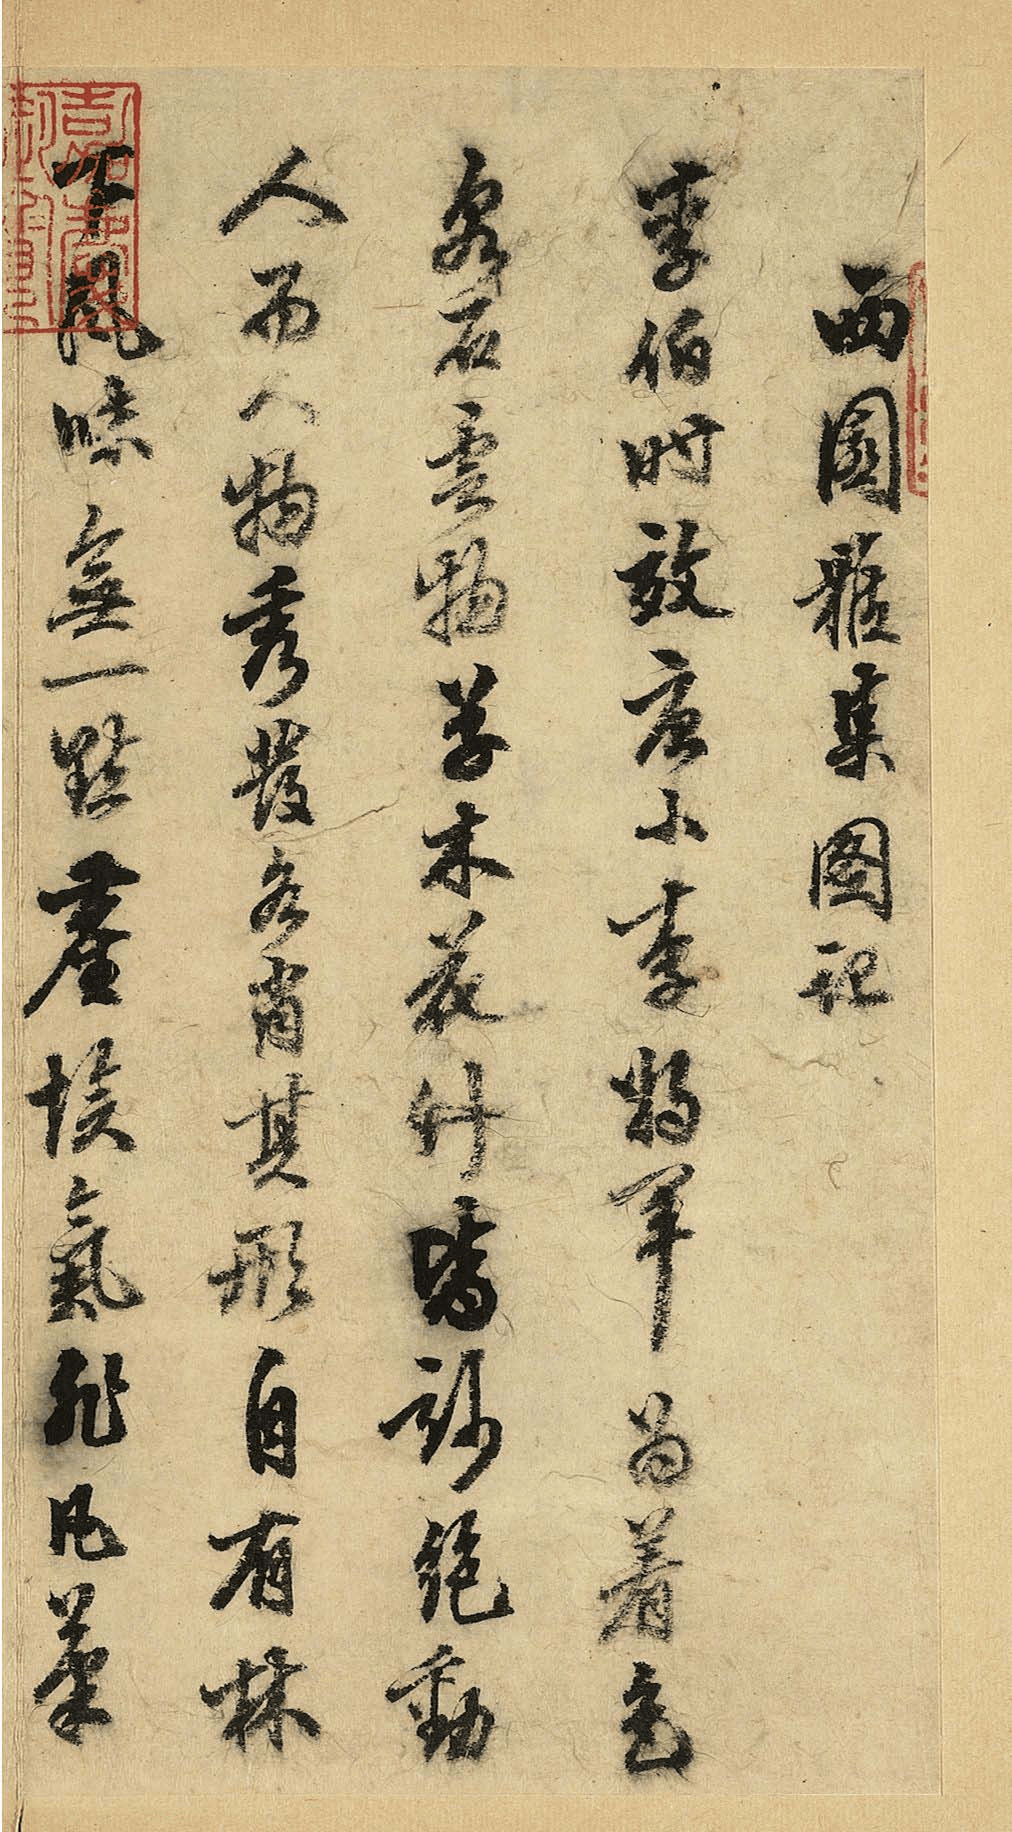 西園雅集圖記
李伯時效唐小李將軍為着色
泉石雲物草木花竹皆妙絕動
人而人物秀發各肖其形自有林
下風味無一點塵埃氣非凡筆